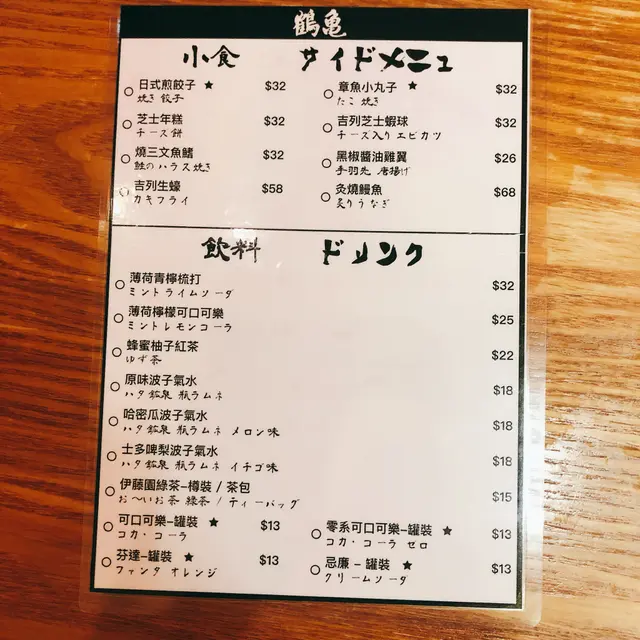 鶴亀
小食 サイドメニュ
日式煎餃子 ★ $32
焼き 餃子
章魚小丸子 ★ $32
たこ 焼き
芝士年糕 $32
チース餅
吉列芝士蝦球 $32
チース入り エビカツ
燒三文魚鰭 $32
鮭のハラス焼き
黑椒醬油雞翼 $26
手羽先 唐揚げ
吉列生蠔 $58
カキフライ
炙燒鰻魚 $68
炙りうなぎ
飲料 ドリンク
薄荷青檸梳打 $32
ミントライムソーダ
薄荷檸檬可口可樂 $25
ミントレモンコーラ
蜂蜜柚子紅茶 $22
ゆず茶
原味波子氣水 $18
ハタ鉱泉 瓶ラムネ
哈密瓜波子氣水 $18
ハタ鉱泉 瓶ラムネ メロン味
士多啤梨波子氣水 $18
ハタ鉱泉 瓶ラムネ イチゴ味
伊藤園綠茶-樽裝 / 茶包 $15
お〜いお茶 緑茶 / ティーバッグ
可口可樂-罐裝 ★ $13
コカ・コーラ
零系可口可樂-罐裝 ★ $13
コカ・コーラ ゼロ
芬達-罐裝 ★ $13
ファンタ オレンジ
忌廉 - 罐裝 ★ $13
クリームソーダ